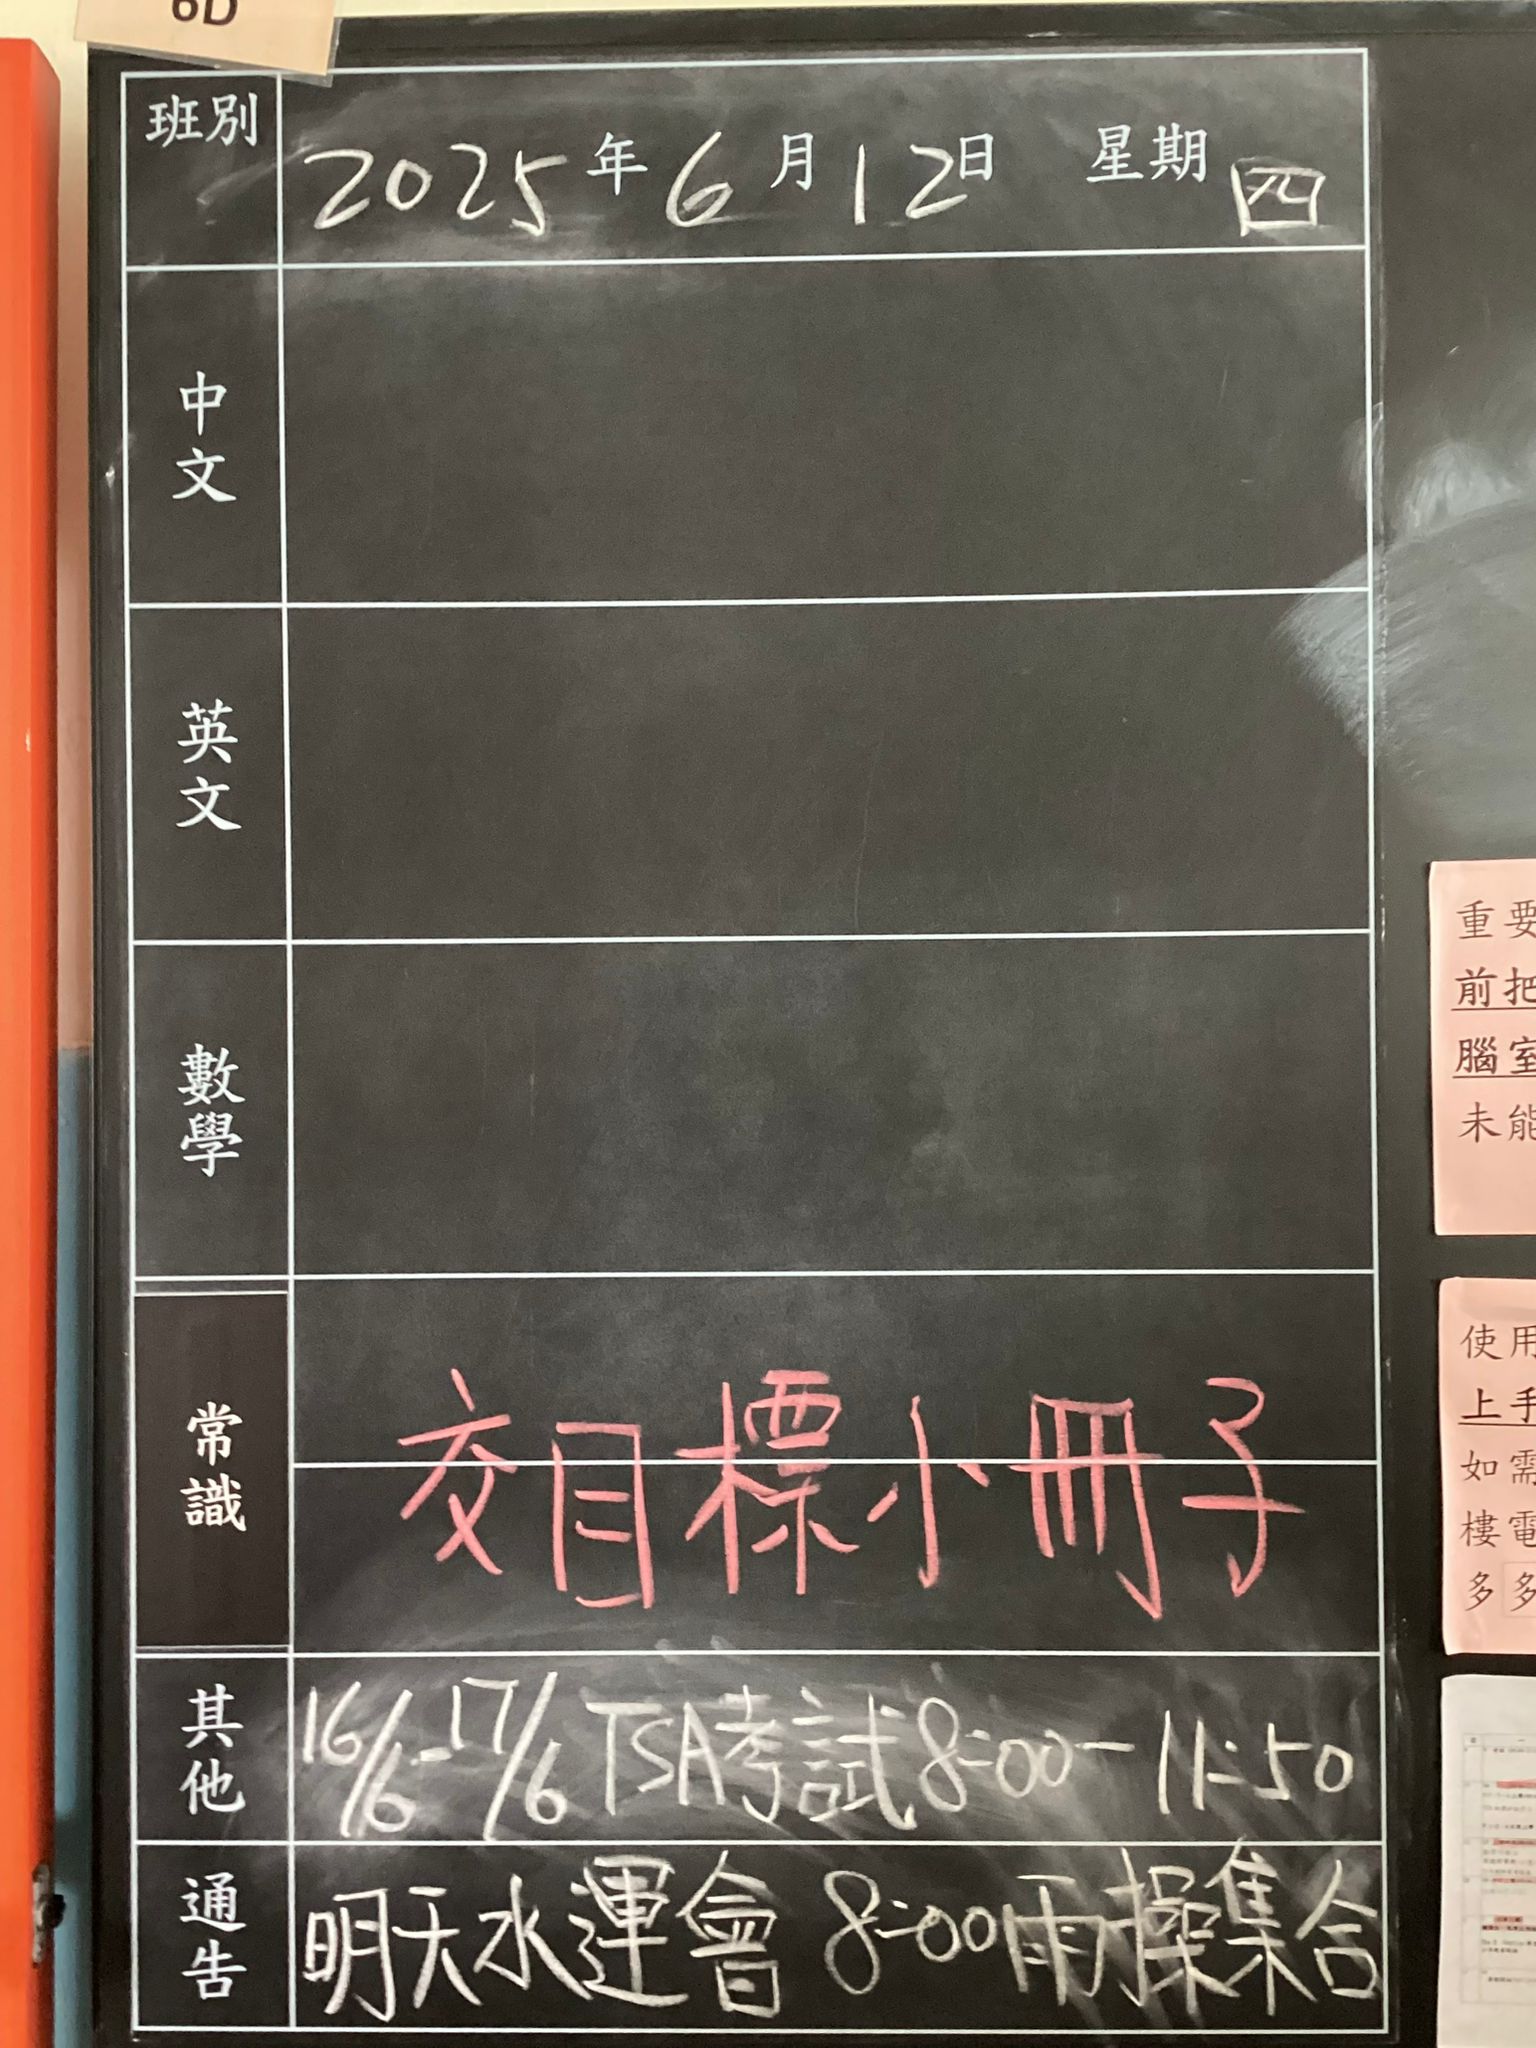 6D
班別
2025年6月12日 星期四
中文
英文
數學
常識
交目標小冊子
其他
16/6-17/6 TSA考試 8:00-11:50
通告
明天水運會 8:00雨操集合
重要
前把
腦室
未能
使用
上手
如需
樓電
多多